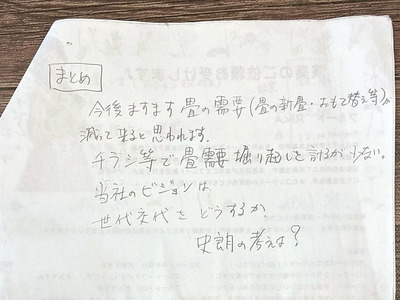 まとめ
今後ますます畳の需要(畳の新畳・おもて替え等)が
減って来ると思われます.
チラシ等で畳需要堀り起しを計るが少ない。
当社のビジョンは
世代交代をどうするか
史朗の考えは?